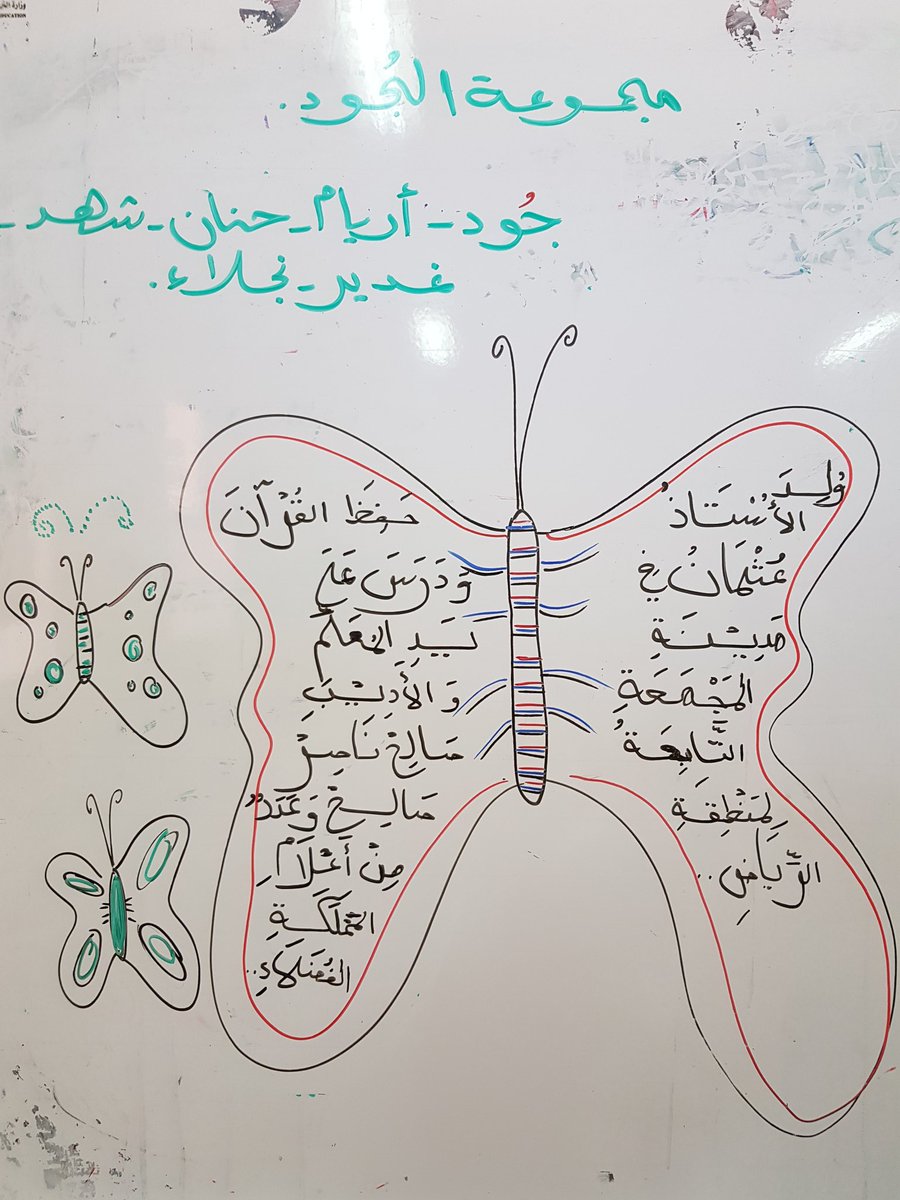 مجموعة الجُود.
جُود - أريام - حنان - شهد -
غدير - نجلاء.
وُلِدَ
الأُسْتَاذُ
عُثْمَانُ في
مَدِيْنَةِ
المَجْمَعَةِ
التَّابِعَةُ
لِمَنْطِقَةِ
الرِّيَاضِ..
حَفِظَ القُرْآنَ
وَدَرَسَ عَلَى
يَدِ المُعَلِّمِ
وَالأَدِيْبَ
صَالِحْ نَاصِرْ
صَالِحْ وَعَدَدٌ
مِنْ أَعْلَامِ
المَمْلَكَةِ
الفُضَلَاءِ..
EDUCATION